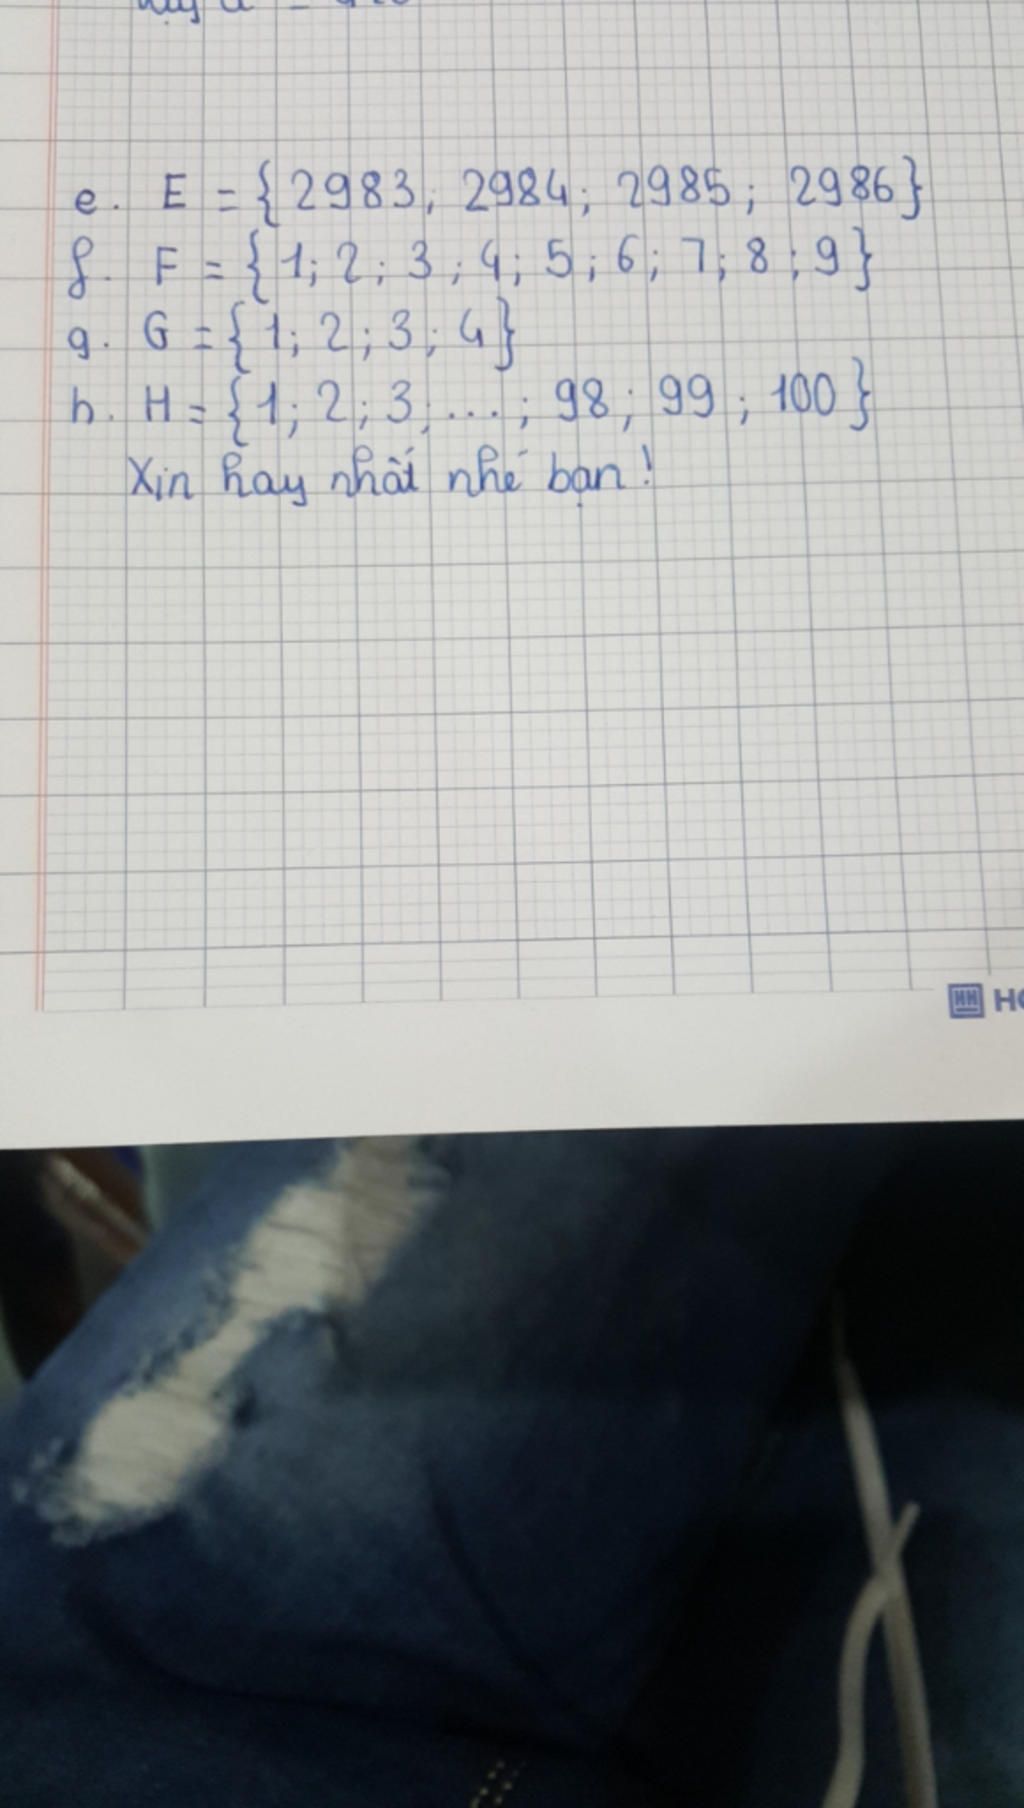 e. E = {2983; 2984; 2985; 2986}
f. F = {1; 2; 3; 4; 5; 6; 7; 8; 9}
g. G = {1; 2; 3; 4}
h. H = {1; 2; 3; ...; 98; 99; 100}
Xin hay nhất nhé bạn!
HH